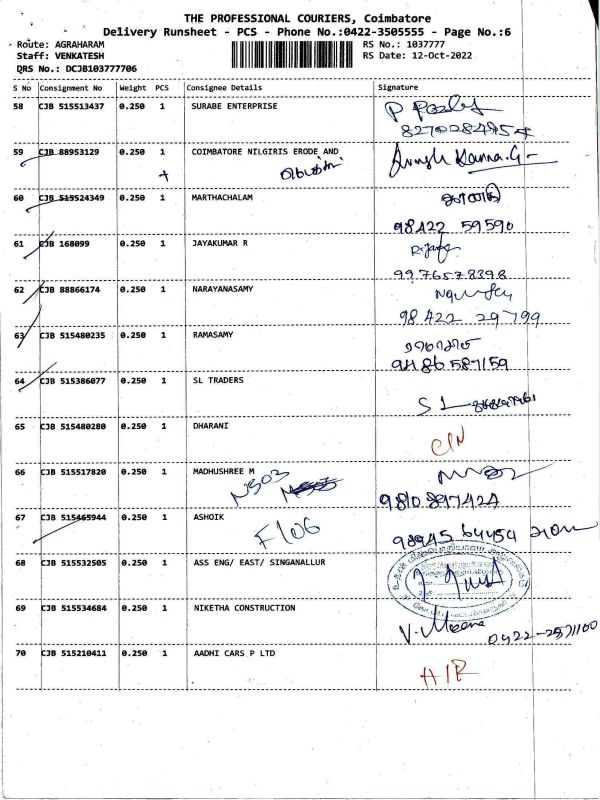 THE PROFESSIONAL COURIERS, Coimbatore
Delivery Runsheet - PCS - Phone No.:0422-3505555 - Page No.:6
Route: AGRAHARAM RS No.: 1037777
Staff: VENKATESH RS Date: 12-Oct-2022
DRS No.: DCJB103777706
S No Consignment No Weight PCS Consignee Details Signature
58 CJB 515513437 0.250 1 SURABE ENTERPRISE
59 CJB 88953129 0.250 1 COIMBATORE NILGIRIS ERODE AND
60 CJB 515524349 0.250 1 MARTHACHALAM
98422 59590
61 CJB 168099 0.250 1 JAYAKUMAR R
9976578398
62 CJB 88866174 0.250 1 NARAYANASAMY
98422 29799
63 CJB 515480235 0.250 1 RAMASAMY
9486587159
64 CJB 515386077 0.250 1 SL TRADERS
65 CJB 515480280 0.250 1 DHARANI
C/N
66 CJB 515517820 0.250 1 MADHUSHREE M
N503
9810897424
67 CJB 515465944 0.250 1 ASHOIK
F106
98945 64454
68 CJB 515532505 0.250 1 ASS ENG/ EAST/ SINGANALLUR
69 CJB 515534684 0.250 1 NIKETHA CONSTRUCTION
V. Meena 0422-2571100
70 CJB 515210411 0.250 1 AADHI CARS P LTD
H/R